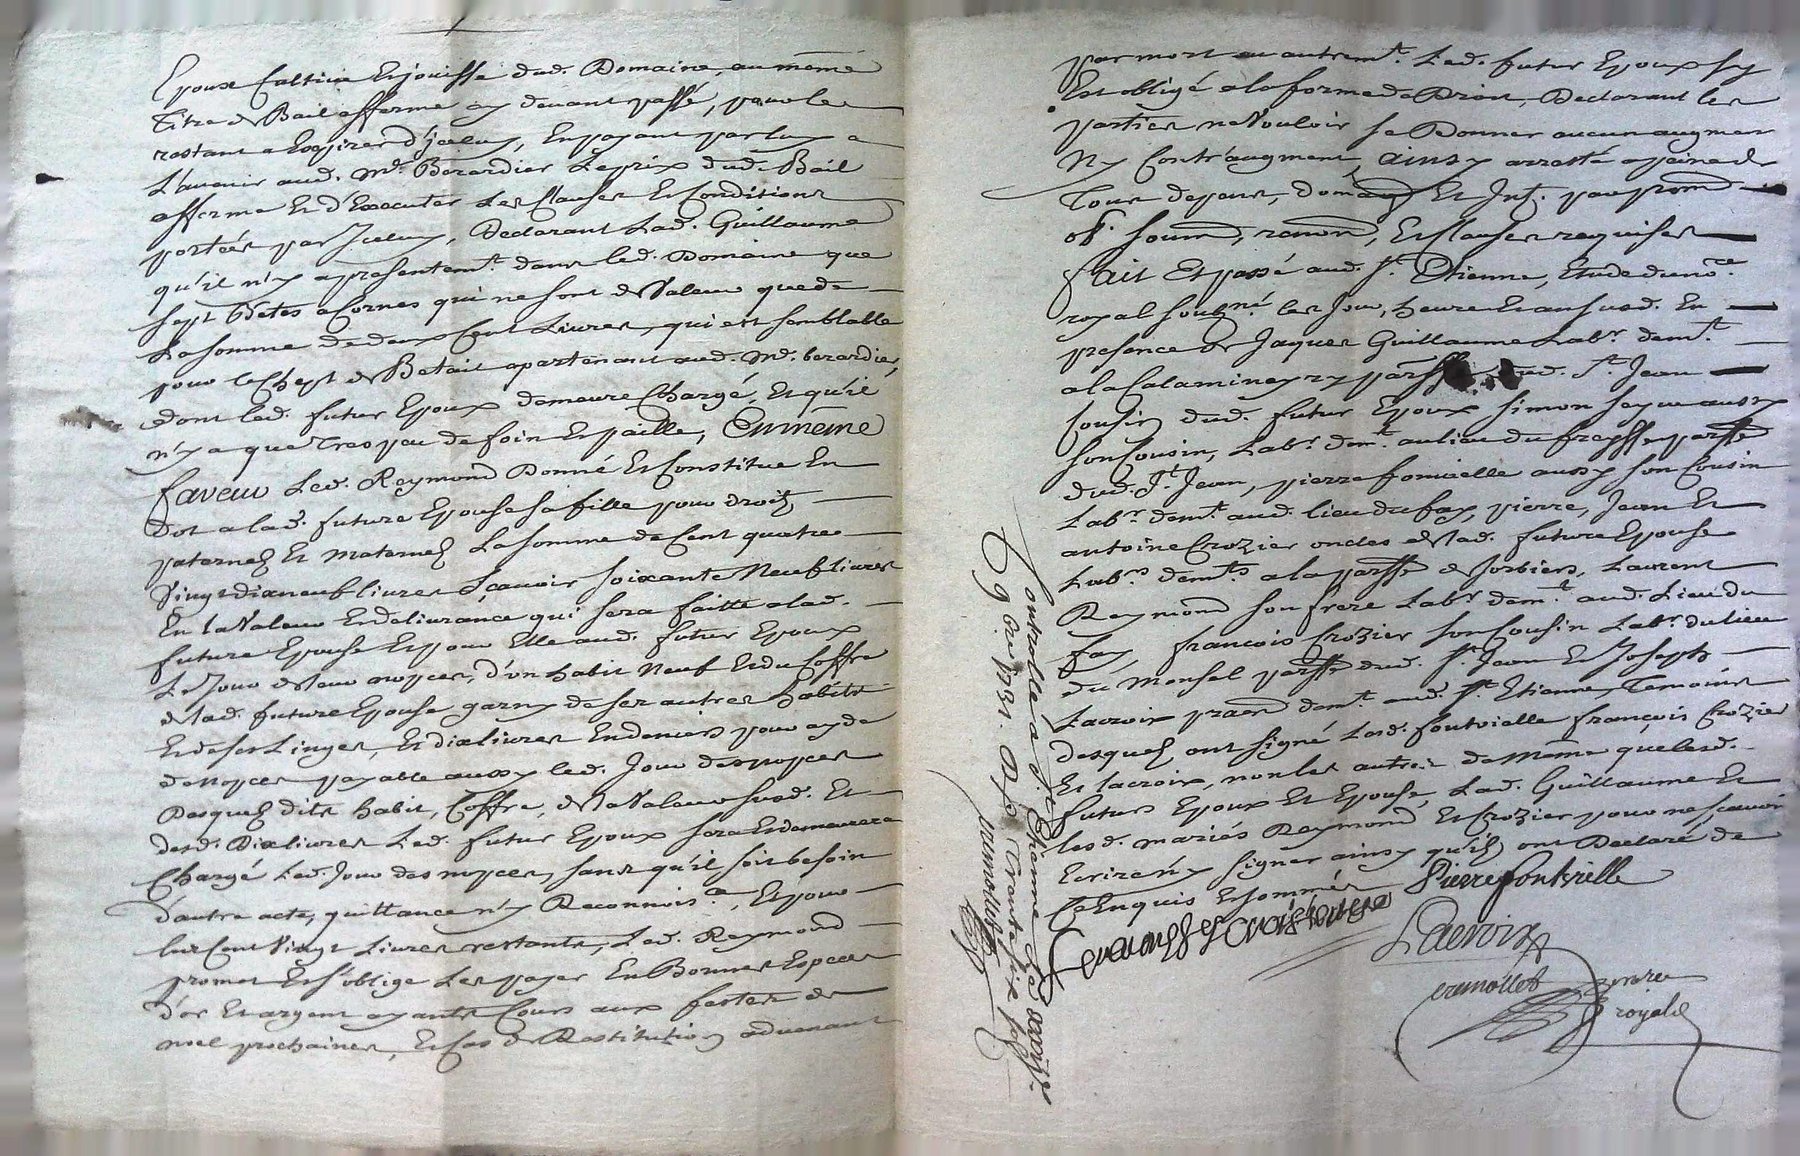 Epoux Cultive Et jouisse dud. Domaine, au même
Titre de Bail afferme cy devant passé, pour le
restant a Expirer d'jceluy, En payant par luy a
L'avenir aud. mr. Berardier Le prix dud. Bail
afferme Et d'Executer Les Clauses Et Conditions
portées par Jceluy, Declarant Lad. Guillaume
qu'il n'y a presentemt. dans led. Domaine que
sept Bêtes a Cornes qui ne sont de Valeur que de
La somme de deux Cent Livres, qui est semblable
pour le Chept. de Betail apartenant aud. mr. berardier,
dont led. futur Epoux demeure Chargé, Et qu'il
n'y a que tres peu de foin Et paille, En même
faveur Led. Reymond Donne Et Constitue En
Dot a lad. future Epouse sa fille pour droitz
paternelz Et maternelz La somme de Cent quatre
Vingt dix neuf livres Sçavoir soixante Neuf livres
En la Valeur Et delivrance qui sera faitte a lad.
future Epouse Et pour Elle aud. futur Epoux
Le Jour de leur nopces, d'un habit Neuf Et du Coffre
de lad. future Epouse garny de ses autres habits
Et de ses Linges, Et dix livres En deniers pour ayde
de nopces payable aussy led. Jour des nopces
Desquelz dits habit, Coffre, de la Valeur susd. Et
desd. Dix livres Led. futur Epoux sera Et demeurera
Chargé Led. Jour des nopces, sans qu'il soit besoin
d'autre acte, quittance n'y Reconnoisce., Et pour
les Cent Vingt Livres restants, Led. Reymond
promet Et s'oblige Les payer En Bonnes Especes
d'or Et argent ayants Cours aux festes de
noel prochaines, Et Cas de Restitution advenant
par mort ou autremt. Led. futur Epoux s'y
Est obligé a la forme de Droit, Declarant les
parties ne Vouloir se Donner aucun augment
Ny Contr'augment, ainsy arresté a peine de
Tous depens, dom. Et Int. par prom.
ob. soum., renon., Et Clauses requises
fait Et passé aud. St. Etienne, Etude du nore.
royal soubné. les Jour, heure Et an susd. En
presence de Jaques Guillaume Labr. demt.
a la Calaminey parsse dud. St. Jean
Cousin dud. futur Epoux Simon seyve aussy
son Cousin, Labr. demt. au lieu du freysse parsse
dud. St. Jean, pierre fontvielle aussy son Cousin
Labr. demt. aud. lieu du fay, pierre, Jean Et
antoine Crozier oncles de lad. future Epouse
Labrs. demts. a la parsse de Sorbiers, Laurent
Reymond son frere Labr. demt. aud. Lieu du
fay, françois Crozier son Cousin Labr. du lieu
du Monsel parsse dud. St. Jean Et Joseph
Lacroix praen demt. aud. St. Etienne, Temoins
desquelz ont signé Lesd. fontvielle françois Crozier
Et lacroix, non les autres de même que lesd.
futurs Epoux Et Epouse, Lad. Guillaume Et
lesd. mariés Reymond Et Crozier pour ne sçavoir
Ecrire n'y signer ainsy qu'ilz ont Declaré de
Ce Enquis Et sommés Pierre fontvielle
Lacroix
cremollet nore
royal
Controllé a St. Etienne Le
9bre 1731. R. Trente six
cremollet